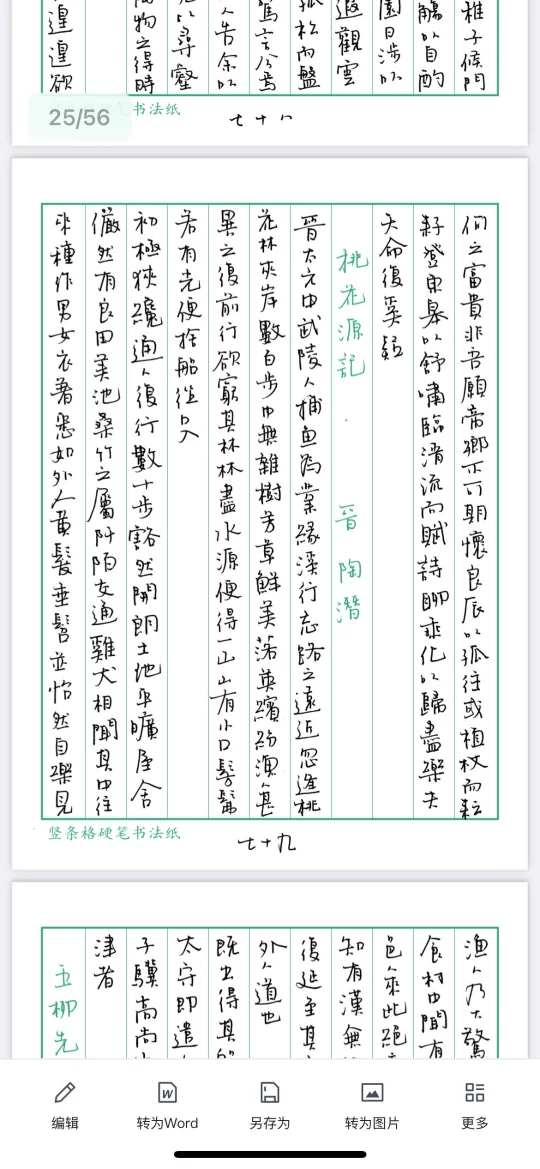 稚子候門
觴以自酌
園日涉以
遐觀雲
孤松而盤
駕言兮焉
人告余以
以尋壑
物之得時
遑遑欲
书法纸
七十八
25/56
何之富貴非吾願帝鄉不可期懷良辰以孤往或植杖而耘
耔登東皋以舒嘯臨清流而賦詩聊乘化以歸盡樂夫
天命復奚疑
桃花源記 · 晉 陶潛
晉太元中武陵人捕魚為業緣溪行忘路之遠近忽逢桃
花林夾岸數百步中無雜樹芳草鮮美落英繽紛漁人甚
異之復前行欲窮其林林盡水源便得一山山有小口髣髴
若有光便捨船從口入
初極狹纔通人復行數十步豁然開朗土地平曠屋舍
儼然有良田美池桑竹之屬阡陌交通雞犬相聞其中往
來種作男女衣著悉如外人黃髮垂髫並怡然自樂見
竖条格硬笔书法纸
七十九
漁人乃大驚
食村中聞有
邑來此絕
知有漢無
復延至其
外人道也
既出得其船
太守即遣
子驥高尚
津者
五柳先
编辑
转为Word
另存为
转为图片
更多